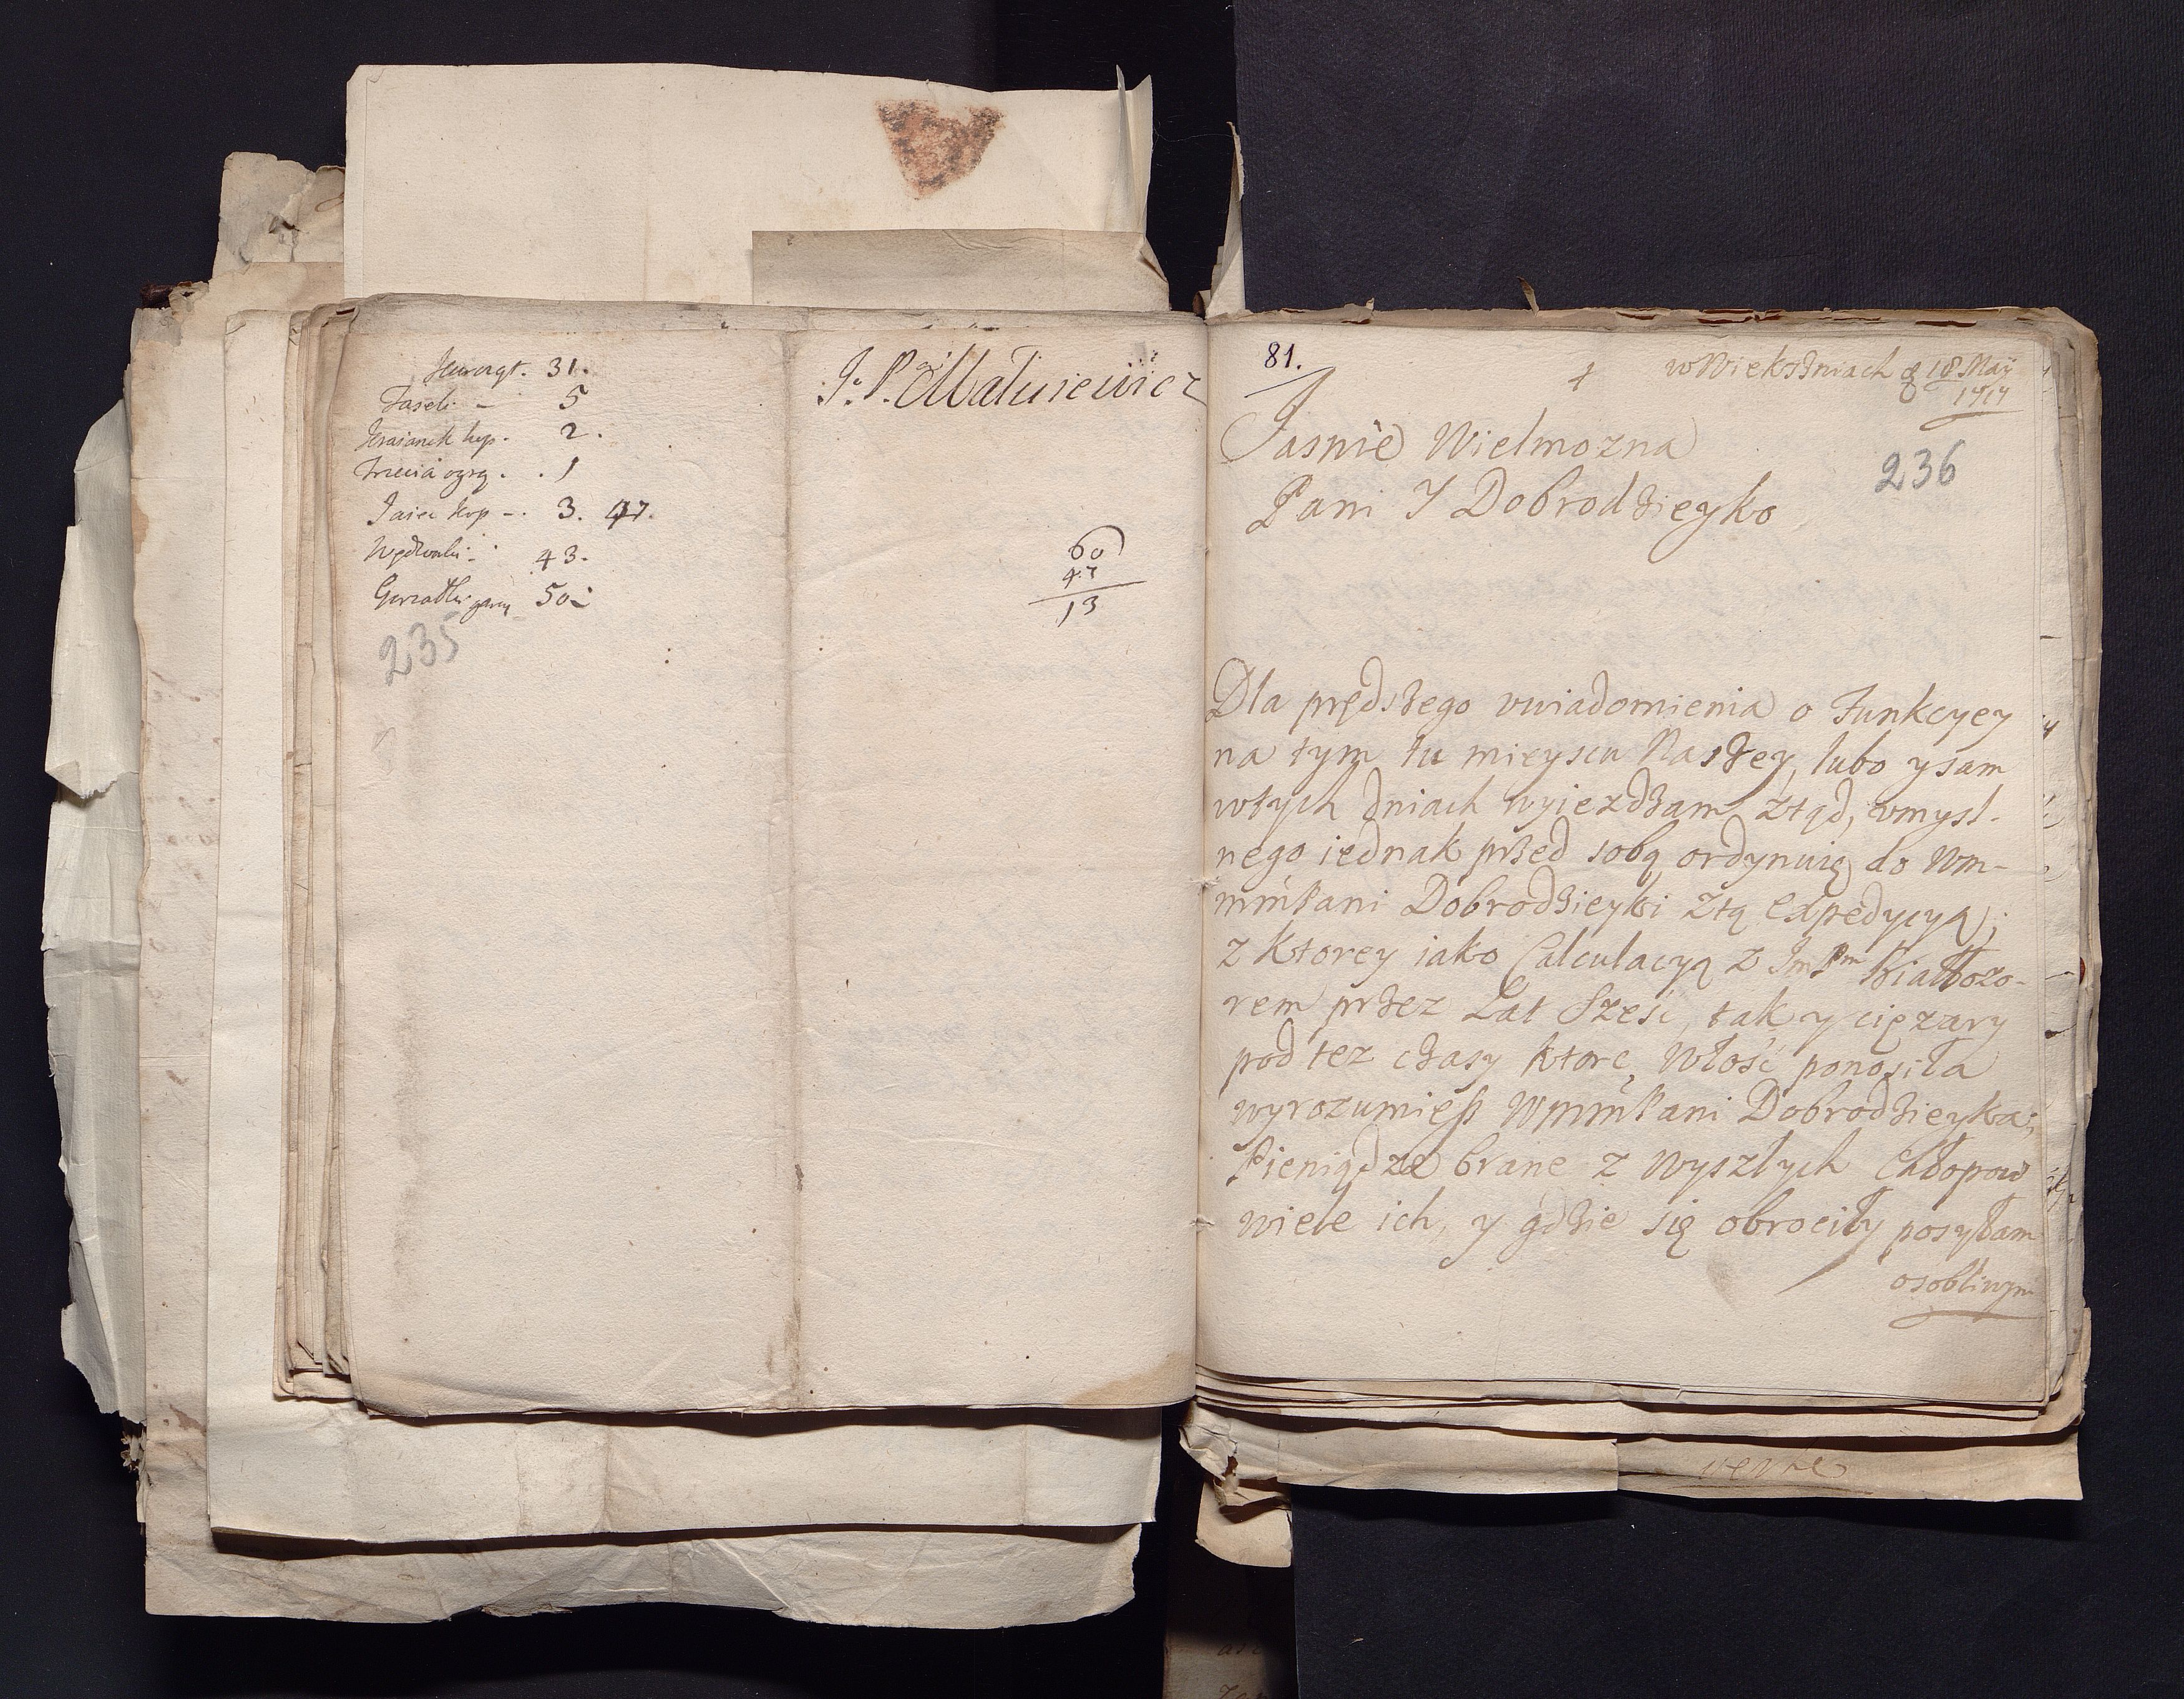 31.
Faseli - 5
kop. 2.
. 1
Jaiec kop -. 3. 47.
Wędzonki. 43.
Gorzałki garcy 50
235
J. P. Matusiewicz
60
47
13
81.
w Wiekszniach d 18 Maÿ
1717
236
Jasnie Wielmozna
Pani Y Dobrodzieyko
Dla prędszego uwiadomienia o Funkcyey
na tym tu mieyscu Naszey, lubo y sam
w tych dniach wyiezdzam ztąd, umysl-
nego iednak przed sobą ordynuię do Wm-
mmPani Dobrodzieyki z tą expedycyą;
z Ktorey iako Calculacyą z JmPm Białłozo-
rem przez Lat Sześć, tak y cięzary
pod tez czasy ktore Włość ponosiła
wyrozumiesz WmmPani Dobrodzieyka;
Pieniądze brane z Wyszłych Chłopow
wiele ich, y gdzie się obrociły posyłam
osobliwym